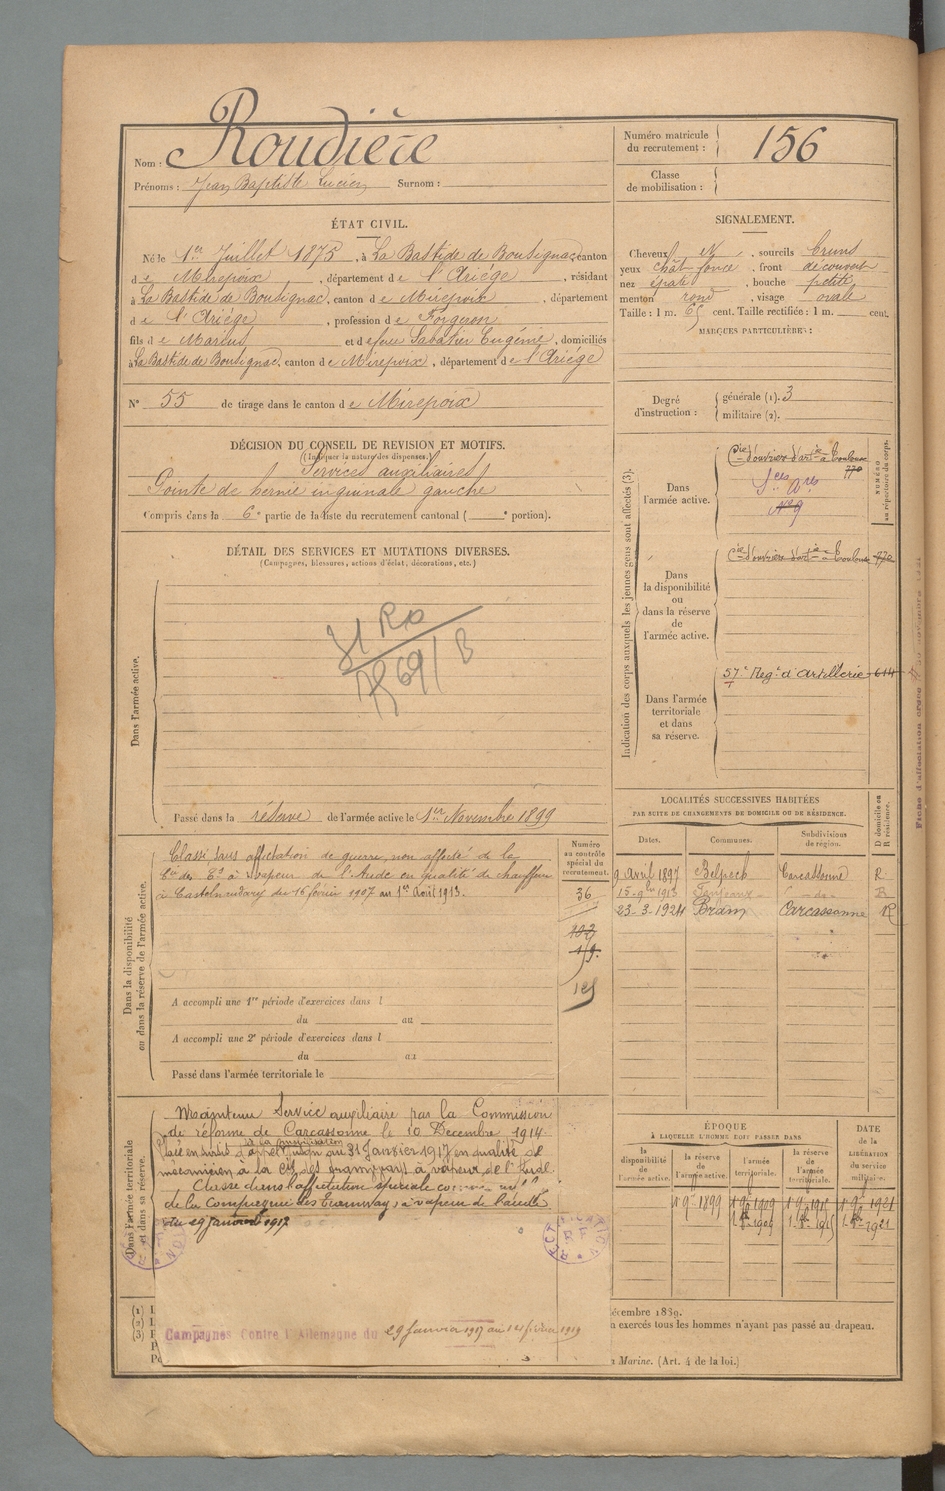 Nom : Roudière
Prénoms : Jean Baptiste Lucien Surnom :
Numéro matricule du recrutement : 156
Classe de mobilisation :
ÉTAT CIVIL.
Né le 1er Juillet 1875, à La Bastide de Bousignac, canton
de Mirepoix, département de l'Ariége, résidant
à La Bastide de Bousignac, canton de Mirepoix, département
de l'Ariége, profession de Forgeron
fils de Marius et de feue Sabatier Eugénie, domiciliés
à La Bastide de Bousignac, canton de Mirepoix, département de l'Ariége
N° 55 de tirage dans le canton de Mirepoix
SIGNALEMENT.
Cheveux N, sourcils bruns
yeux chât. foncé, front découvert
nez épaté, bouche petite
menton rond, visage ovale
Taille : 1 m. 65 cent. Taille rectifiée : 1 m. cent.
MARQUES PARTICULIÈRES :
Degré d'instruction : générale (1). 3
militaire (2).
DÉCISION DU CONSEIL DE REVISION ET MOTIFS.
(Indiquer la nature des dispenses.)
Services auxiliaires
Pointe de hernie inguinale gauche
Compris dans la 6e partie de la liste du recrutement cantonal ( e portion).
DÉTAIL DES SERVICES ET MUTATIONS DIVERSES.
(Campagnes, blessures, actions d'éclat, décorations, etc.)
Dans l'armée active.
Passé dans la réserve de l'armée active le 1er Novembre 1899
Indication des corps auxquels les jeunes gens sont affectés (3).
NUMÉRO au répertoire du corps.
Dans l'armée active.
Cie d'ouvriers d'artie à Toulouse 770
N° 9
Dans la disponibilité ou dans la réserve de l'armée active.
Cie d'ouvriers d'artie à Toulouse 770
Dans l'armée territoriale et dans sa réserve.
57e Regt d'Artillerie 614
Dans la disponibilité ou dans la réserve de l'armée active.
Classé sans affectation de guerre, non affecté de la
Cie des à vapeur de l'Aude en qualité de chauffeur
à Castelnaudary du 16 février 1907 au 1er Août 1913.
A accompli une 1re période d'exercices dans l
du au
A accompli une 2e période d'exercices dans l
du au
Passé dans l'armée territoriale le
Numéro au contrôle spécial du recrutement.
36
LOCALITÉS SUCCESSIVES HABITÉES
PAR SUITE DE CHANGEMENTS DE DOMICILE OU DE RÉSIDENCE.
Dates. Communes. Subdivisions de région. D domicile ou R résidence.
9 avril 1897 Belpech Carcassonne R
15-9bre 1913 Fanjeaux do R
23-3-1924 Bram Carcassonne R
Dans l'armée territoriale et dans sa réserve.
Maintenu Service auxiliaire par la Commission
de réforme de Carcassonne le 10 Decembre 1914.
d'appel jusqu'au 31 Janvier 1917 en qualité de
mécanicien à la Cie des tramways à vapeur de l'Aude.
Classé dans l'affectation spéciale comme
de la Compagnie des Tramways à vapeur de l'Aude
du 29 Janvier 1917
Campagnes Contre l'Allemagne du 29 Janvier 1917 au février 1919
ÉPOQUE
À LAQUELLE L'HOMME DOIT PASSER DANS
la disponibilité de l'armée active. la réserve de l'armée active. l'armée territoriale. la réserve de l'armée territoriale.
DATE de la LIBÉRATION du service militaire.
1 9bre 1899
(1)
(2)
(3)
écembre 1889.
n exercés tous les hommes n'ayant pas passé au drapeau.
Marine. (Art. 4 de la loi.)